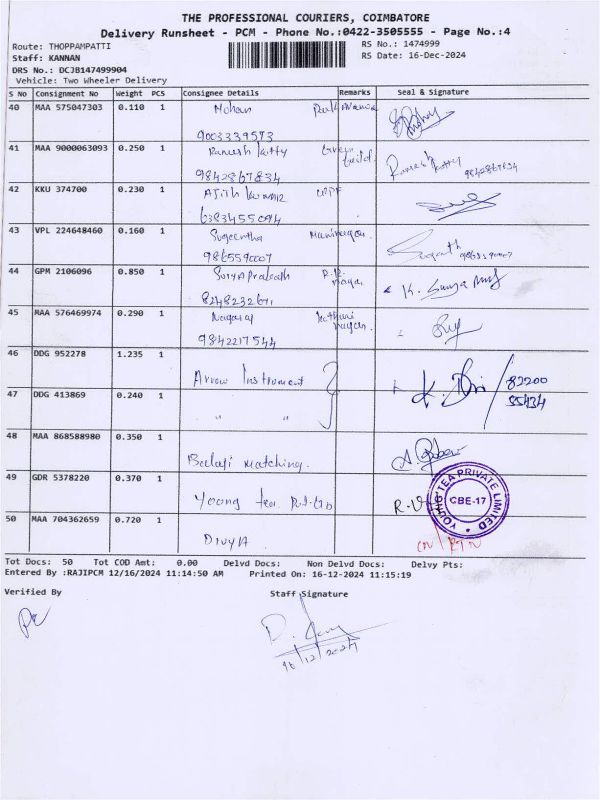 THE PROFESSIONAL COURIERS, COIMBATORE
Delivery Runsheet - PCM - Phone No.:0422-3505555 - Page No.:4
Route: THOPPAMPATTI
RS No.: 1474999
Staff: KANNAN
RS Date: 16-Dec-2024
DRS No.: DCJB147499904
Vehicle: Two Wheeler Delivery
S No Consignment No Weight PCS Consignee Details Remarks Seal & Signature
40 MAA 575047303 0.110 1 Mohan
9003339573
41 MAA 9000063093 0.250 1 Ramesh Kitty Green Ramesh Kitty
9842867834 9842867834
42 KKU 374700 0.230 1 Ajith Kumar
6383455094
43 VPL 224648460 0.160 1 Sugeertha Maninagar. Suganth
9865590007
44 GPM 2106096 0.850 1 Surya Prakash R.R. nagar K. Surya
45 MAA 576469974 0.290 1 Nagaraj nagar.
9842217544
46 DDG 952278 1.235 1
Arrow Instrument
82200
55434
47 DDG 413869 0.240 1
" "
48 MAA 868588980 0.350 1
Balaji matching.
49 GDR 5378220 0.370 1
Young tea P. Ltd R.V
YOUNG TEA PRIVATE LIMITED
CBE-17
50 MAA 704362659 0.720 1
Divya
Tot Docs: 50 Tot COD Amt: 0.00 Delvd Docs: Non Delvd Docs: Delvy Pts:
Entered By :RAJIPCM 12/16/2024 11:14:50 AM Printed On: 16-12-2024 11:15:19
Verified By Staff Signature
16/12/2024